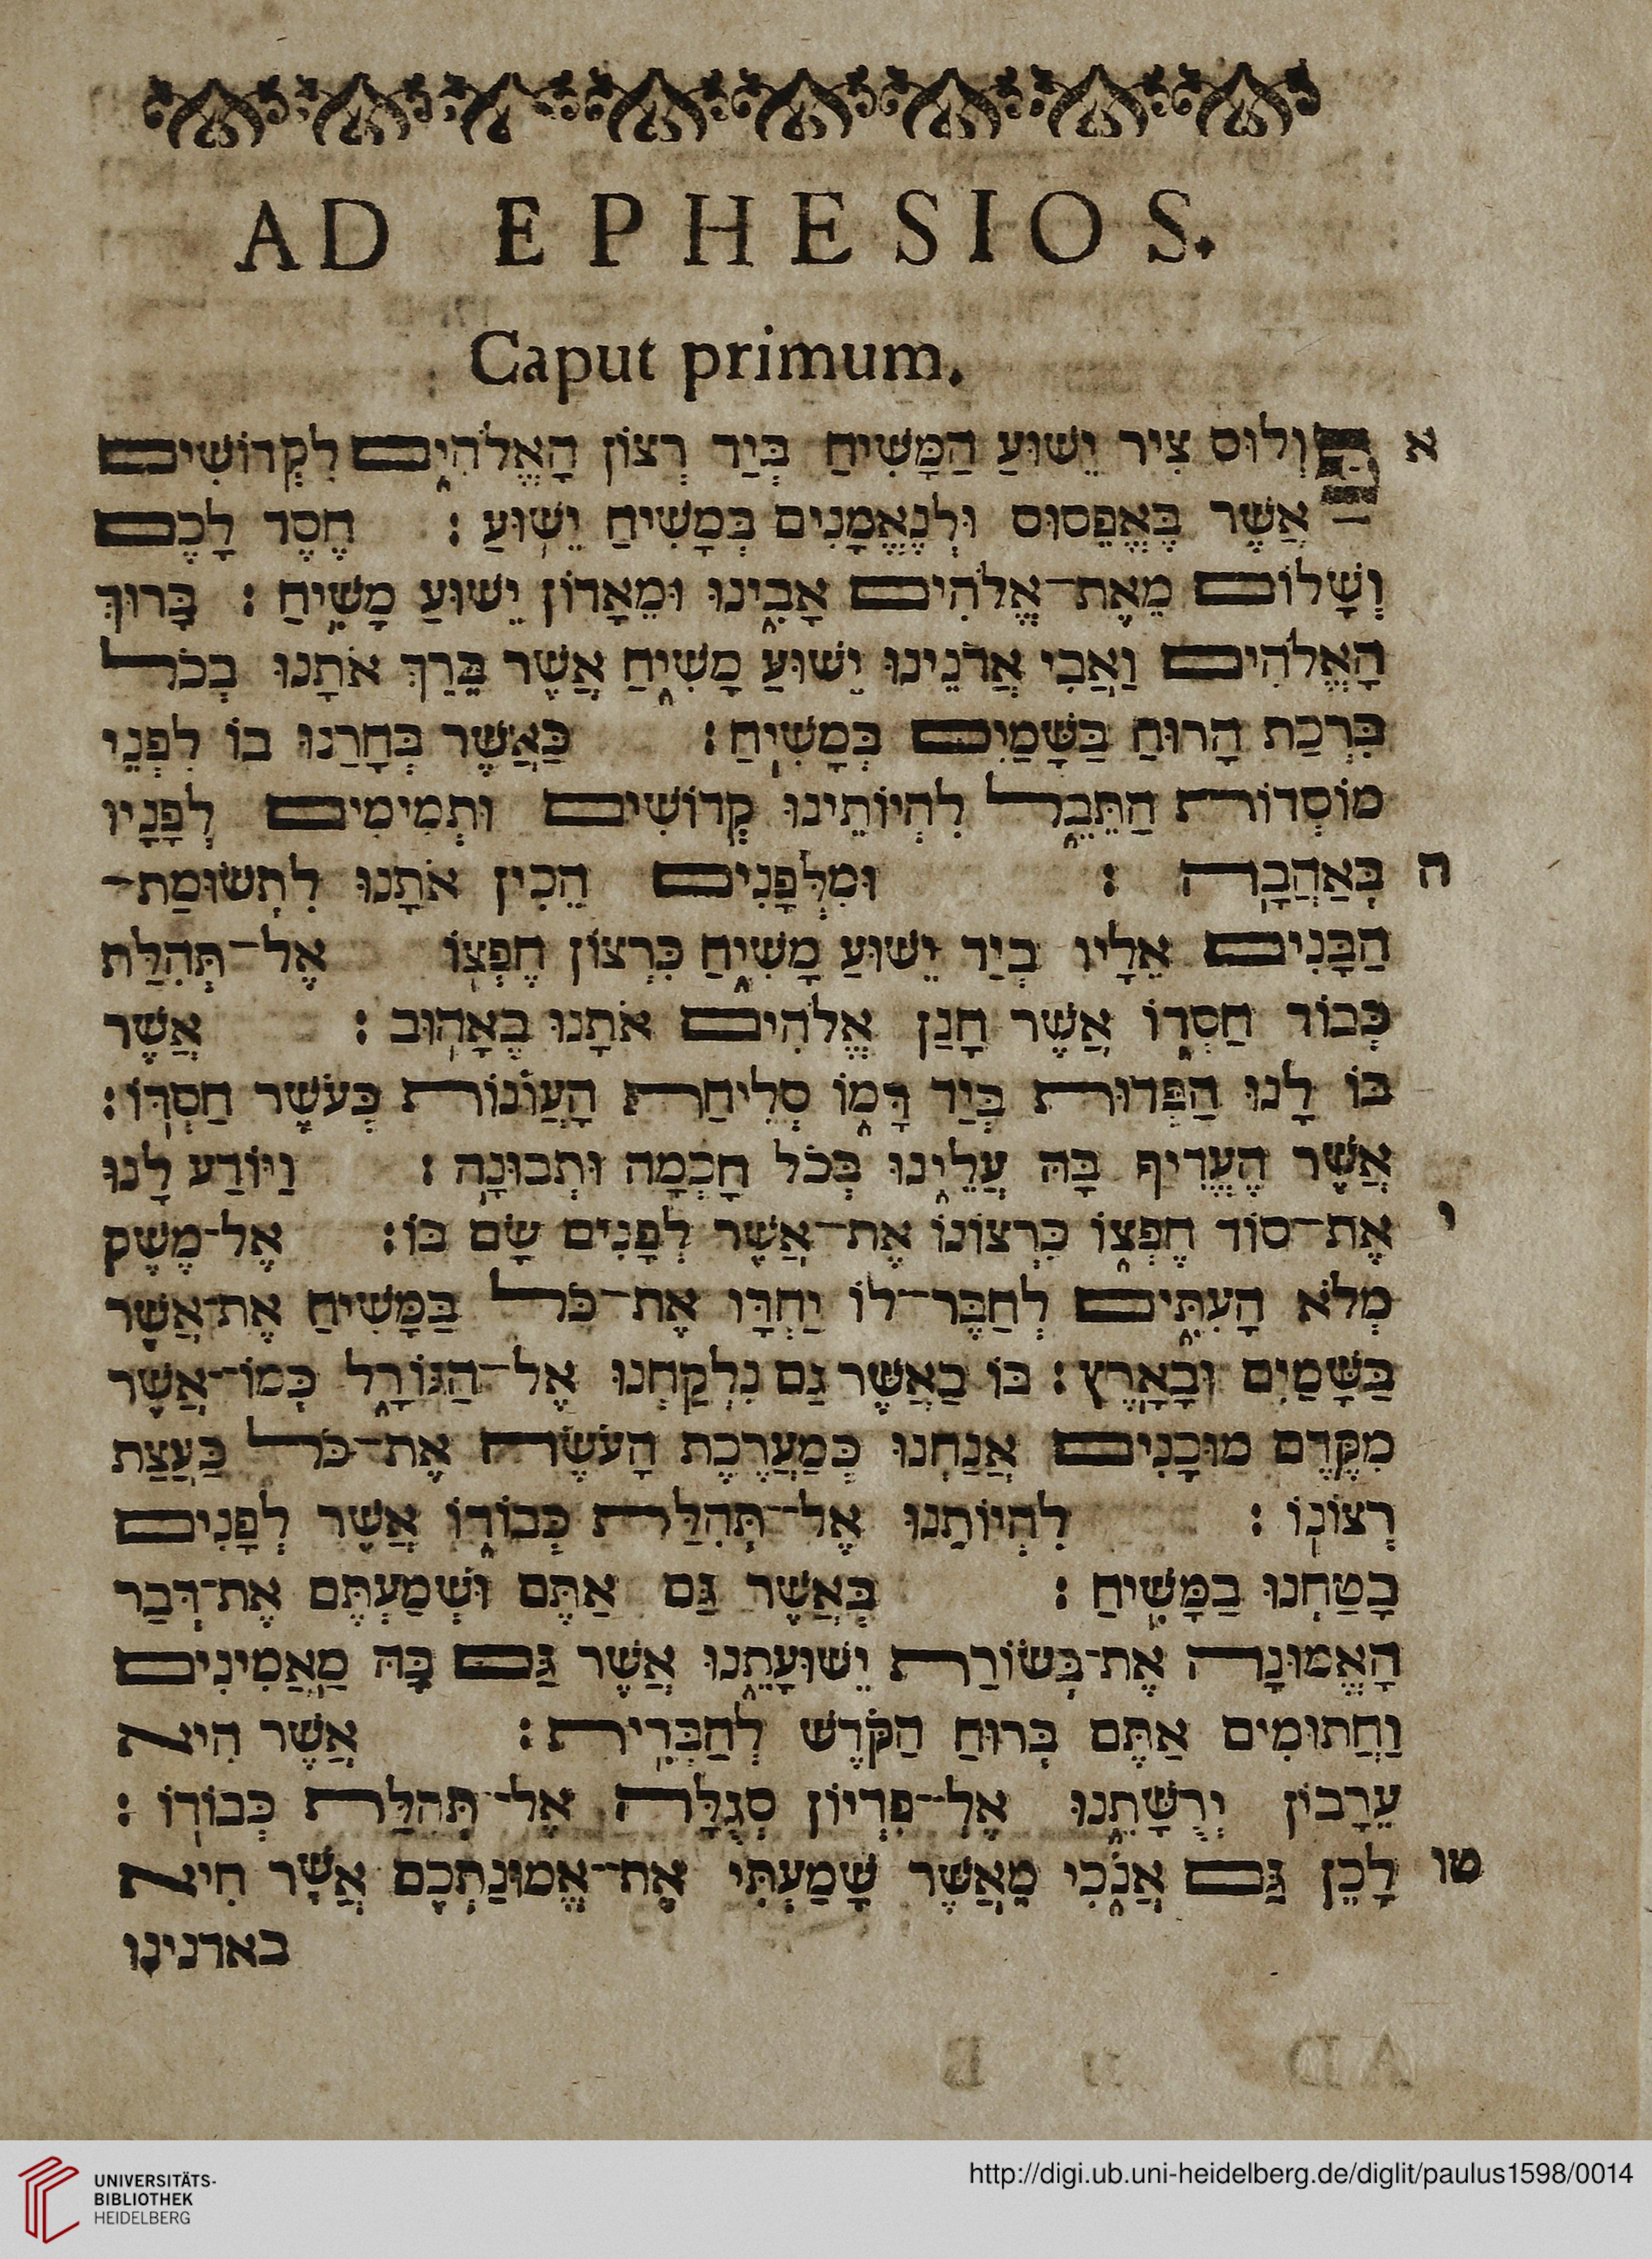 AD EPHESIOS.
Caput primum.
א פַּוְלוּס צִיר יֵשׁוּעַ הַמָּשִׁיחַ בְּיַד רְצוֹן הָאֱלֹהִים לִקְדוֹשִׁים
אֲשֶׁר בֶּאֱפֵסוּס וּלְנֶאֱמָנִים בְּמָשִׁיחַ יֵשׁוּעַ : חֶסֶד לָכֶם
וְשָׁלוֹם מֵאֵת־אֱלֹהִים אָבִינוּ וּמֵאָדוֹן יֵשׁוּעַ מָשִׁיחַ : בָּרוּךְ
הָאֱלֹהִים וַאֲבִי אֲדֹנֵינוּ יֵשׁוּעַ מָשִׁיחַ אֲשֶׁר בֵּרַךְ אֹתָנוּ בְכֹל
בִּרְכַת הָרוּחַ בַּשָּׁמַיִם בְּמָשִׁיחַ : כַּאֲשֶׁר בְּחָרַנוּ בוֹ לִפְנֵי
מוֹסְדוֹת הַתֵּבֵל לִהְיוֹתֵינוּ קְדוֹשִׁים וּתְמִימִים לְפָנָיו
ה בְּאַהֲבָה : וּמִלְּפָנִים הֵכִין אֹתָנוּ לִתְשׂוּמַת־
הַבָּנִים אֵלָיו בְיַד יֵשׁוּעַ מָשִׁיחַ כִּרְצוֹן חֶפְצוֹ אֶל־תְּהִלַּת
כְּבוֹד חַסְדּוֹ אֲשֶׁר חָנַן אֱלֹהִים אֹתָנוּ בֶאָהוּב : אֲשֶׁר
בּוֹ לָנוּ הַפְּדוּת בְּיַד דָּמוֹ סְלִיחַת הָעֲוֹנוֹת כְּעֹשֶׁר חַסְדּוֹ :
אֲשֶׁר הֶעֱדִיף בָּהּ עָלֵינוּ בְּכֹל חָכְמָה וּתְבוּנָה : וַיּוֹדַע לָנוּ
י אֶת־סוֹד חֶפְצוֹ כִּרְצוֹנוֹ אֶת־אֲשֶׁר לְפָנִים שָׂם בּוֹ : אֶל־מֶשֶׁק
מְלֹא הָעִתִּים לְחַבֶּר־לוֹ יַחְדָּו אֶת־כֹּל בַּמָּשִׁיחַ אֶת־אֲשֶׁר
בַּשָּׁמַיִם וּבָאָרֶץ : בּוֹ כַאֲשֶׁר גַם נִלְקַחְנוּ אֶל־הַגּוֹרָל כְּמוֹ־אֲשֶׁר
מִקֶּדֶם מוּכָנִים אֲנַחְנוּ כְּמַעֲרֶכֶת הָעֹשֶׂה אֶת־כֹּל כַּעֲצַת
רְצוֹנוֹ : לִהְיוֹתֵנוּ אֶל־תְּהִלַּת כְּבוֹדוֹ אֲשֶׁר לְפָנִים
בָטַחְנוּ בַמָּשִׁיחַ : בְּאֲשֶׁר גַּם אַתֶּם וּשְׁמַעְתֶּם אֶת־דְּבַר
הָאֱמוּנָה אֶת־בְּשׂוֹרַת יֵשׁוּעָתֵנוּ אֲשֶׁר גַּם בָּהּ מַאֲמִינִים
וַחֲתוּמִים אַתֶּם בְּרוּחַ הַקֹּדֶשׁ לְהַבְּרִית : אֲשֶׁר הִיא
עֵרָבוֹן יְרֻשָּׁתֵנוּ אֶל־פִּדְיוֹן סְגֻלָּה אֶל־תְּהִלַּת כְּבוֹדוֹ :
טו לָכֵן גַּם אָנֹכִי מֵאֲשֶׁר שָׁמַעְתִּי אֶת־אֱמוּנַתְכֶם אֲשֶׁר הִיא
באדנינו
UNIVERSITÄTS-
BIBLIOTHEK
HEIDELBERG
http://digi.ub.uni-heidelberg.de/diglit/paulus1598/0014